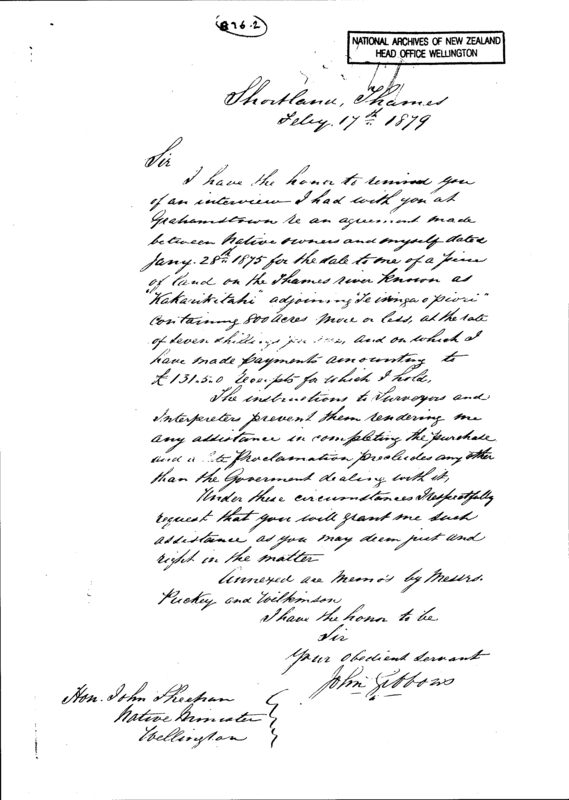 876.2
NATIONAL ARCHIVES OF NEW ZEALAND
HEAD OFFICE WELLINGTON
Shortland, Thames
Feby. 17th 1879
Sir
I have the honor to remind you
of an interview I had with you at
Grahamstown re an agreement made
between Native owners and myself dated
Jany. 28th 1875 for the sale to me of a piece
of land on the Thames river known as
"Kakarikitahi" adjoining "Te
containing 800 acres more or less, at the rate
of seven shillings per acre, and on which I
have made payments amounting to
£131.5.0 receipts for which I hold.
The instructions to Surveyors and
Interpreters prevent them rendering me
any assistance in completing the purchase
and a late Proclamation precludes any other
than the Goverment dealing with it,
Under these circumstances I respectfully
request that you will grant me such
assistance as you may deem just and
right in the matter
Annexed are Memo's by Messrs.
Puckey and Wilkinson
I have the honor to be
Sir
Your obedient servant
John Gibbons
Hon. John Sheehan
Native Minister
Wellington